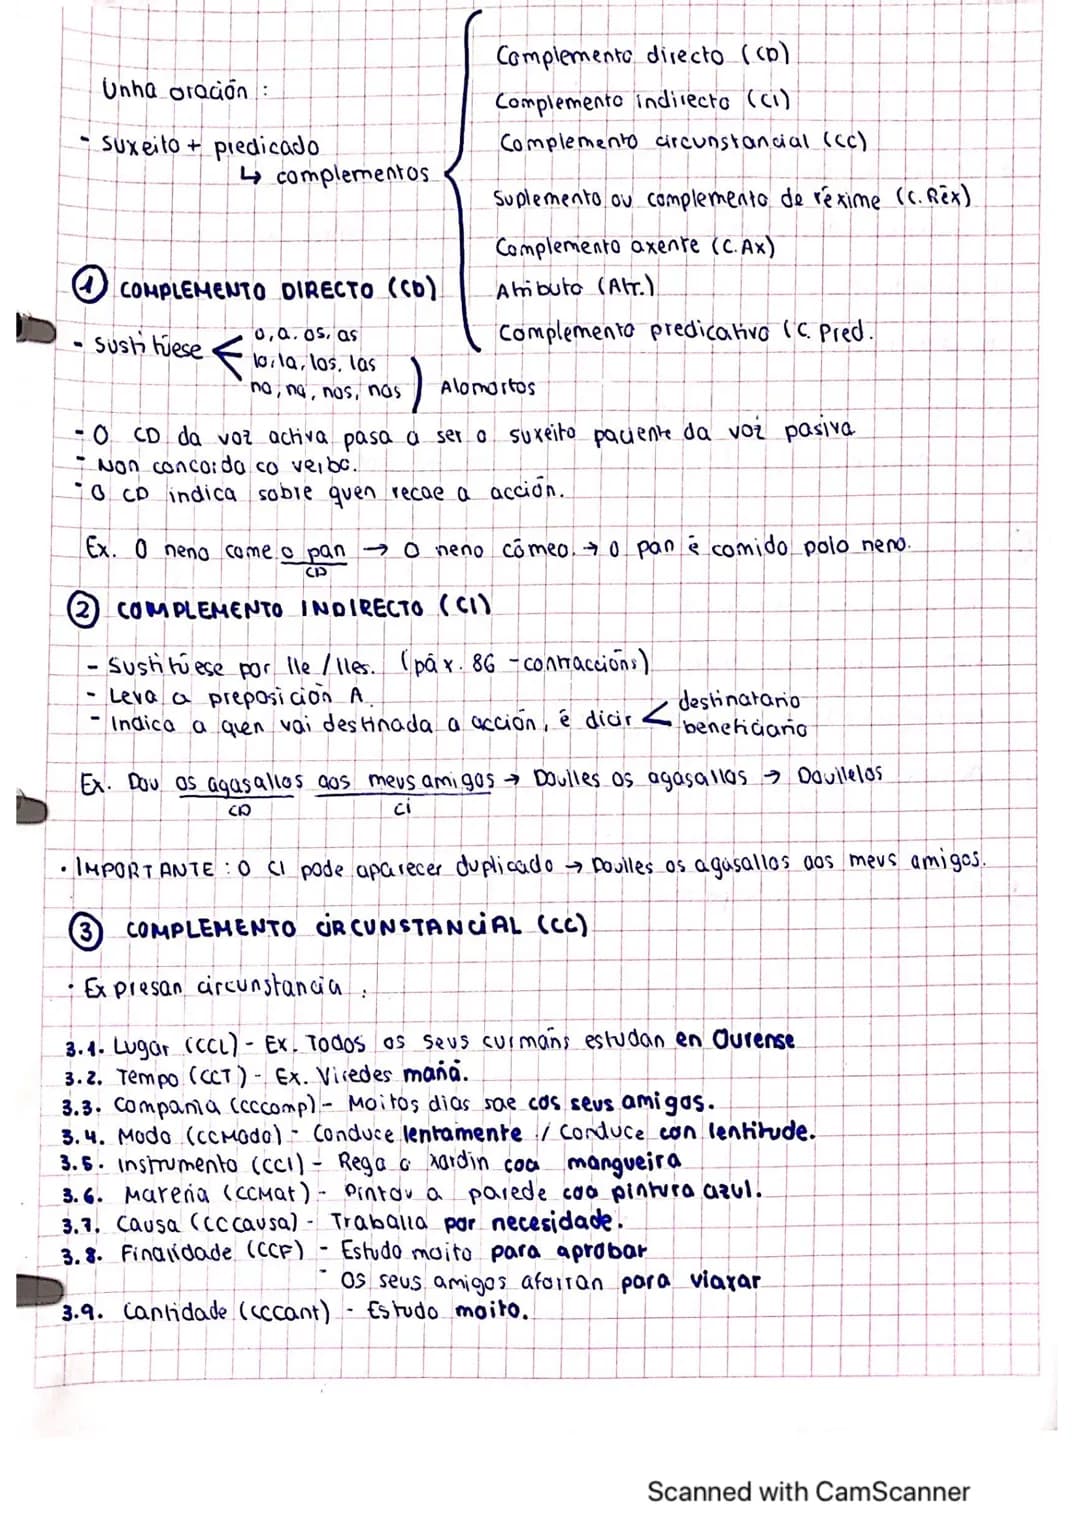 Unha oración :
- suxeito + predicado
↳ complementos
Complemento directo (CD)
Complemento indirecto (CI)
Complemento circunstancial (CC)
Suplemento ou complemento de réxime (C. Réx)
Complemento axente (C. Ax)
Atributo (Atr.)
Complemento predicativo (C. Pred.
① COMPLEMENTO DIRECTO (CD)
- Sustitúese < o, a, os, as
lo, la, los, las
no, na, nos, nas ) Alomorfos
- O CD da voz activa pasa a ser o suxeito paciente da voz pasiva
- Non concorda co verbo.
- O CD indica sobre quen recae a acción.
Ex. O neno come o pan → O neno cómeo. → O pan é comido polo neno.
CD
② COMPLEMENTO INDIRECTO (CI)
- Sustitúese por lle / lles. (páx. 86 - contraccións)
- Leva a preposición A.
- Indica a quen vai destinada a acción, é dicir < destinatario
beneficiario
Ex. Dou os agasallos aos meus amigos → Doulles os agasallos → Doullelos
CD CI
· IMPORTANTE : O CI pode aparecer duplicado → Doulles os agasallos aos meus amigos.
③ COMPLEMENTO CIRCUNSTANCIAL (CC)
· Expresan circunstancia :
3.1. Lugar (CCL) - Ex. Todos os seus curmáns estudan en Ourense
3.2. Tempo (CCT) - Ex. Viredes mañá.
3.3. Compañía (CCcomp) - Moitos días sae cos seus amigos.
3.4. Modo (CCModo) - Conduce lentamente / Conduce con lentitude.
3.5. Instrumento (CCI) - Rega o xardín coa mangueira
3.6. Materia (CCMat) - Pintou a parede coa pintura azul.
3.7. Causa (CCcausa) - Traballa por necesidade.
3.8. Finalidade (CCF) - Estudo moito para aprobar
- Os seus amigos aforran para viaxar
3.9. Cantidade (CCcant) - Estudo moito.
Scanned with CamScanner